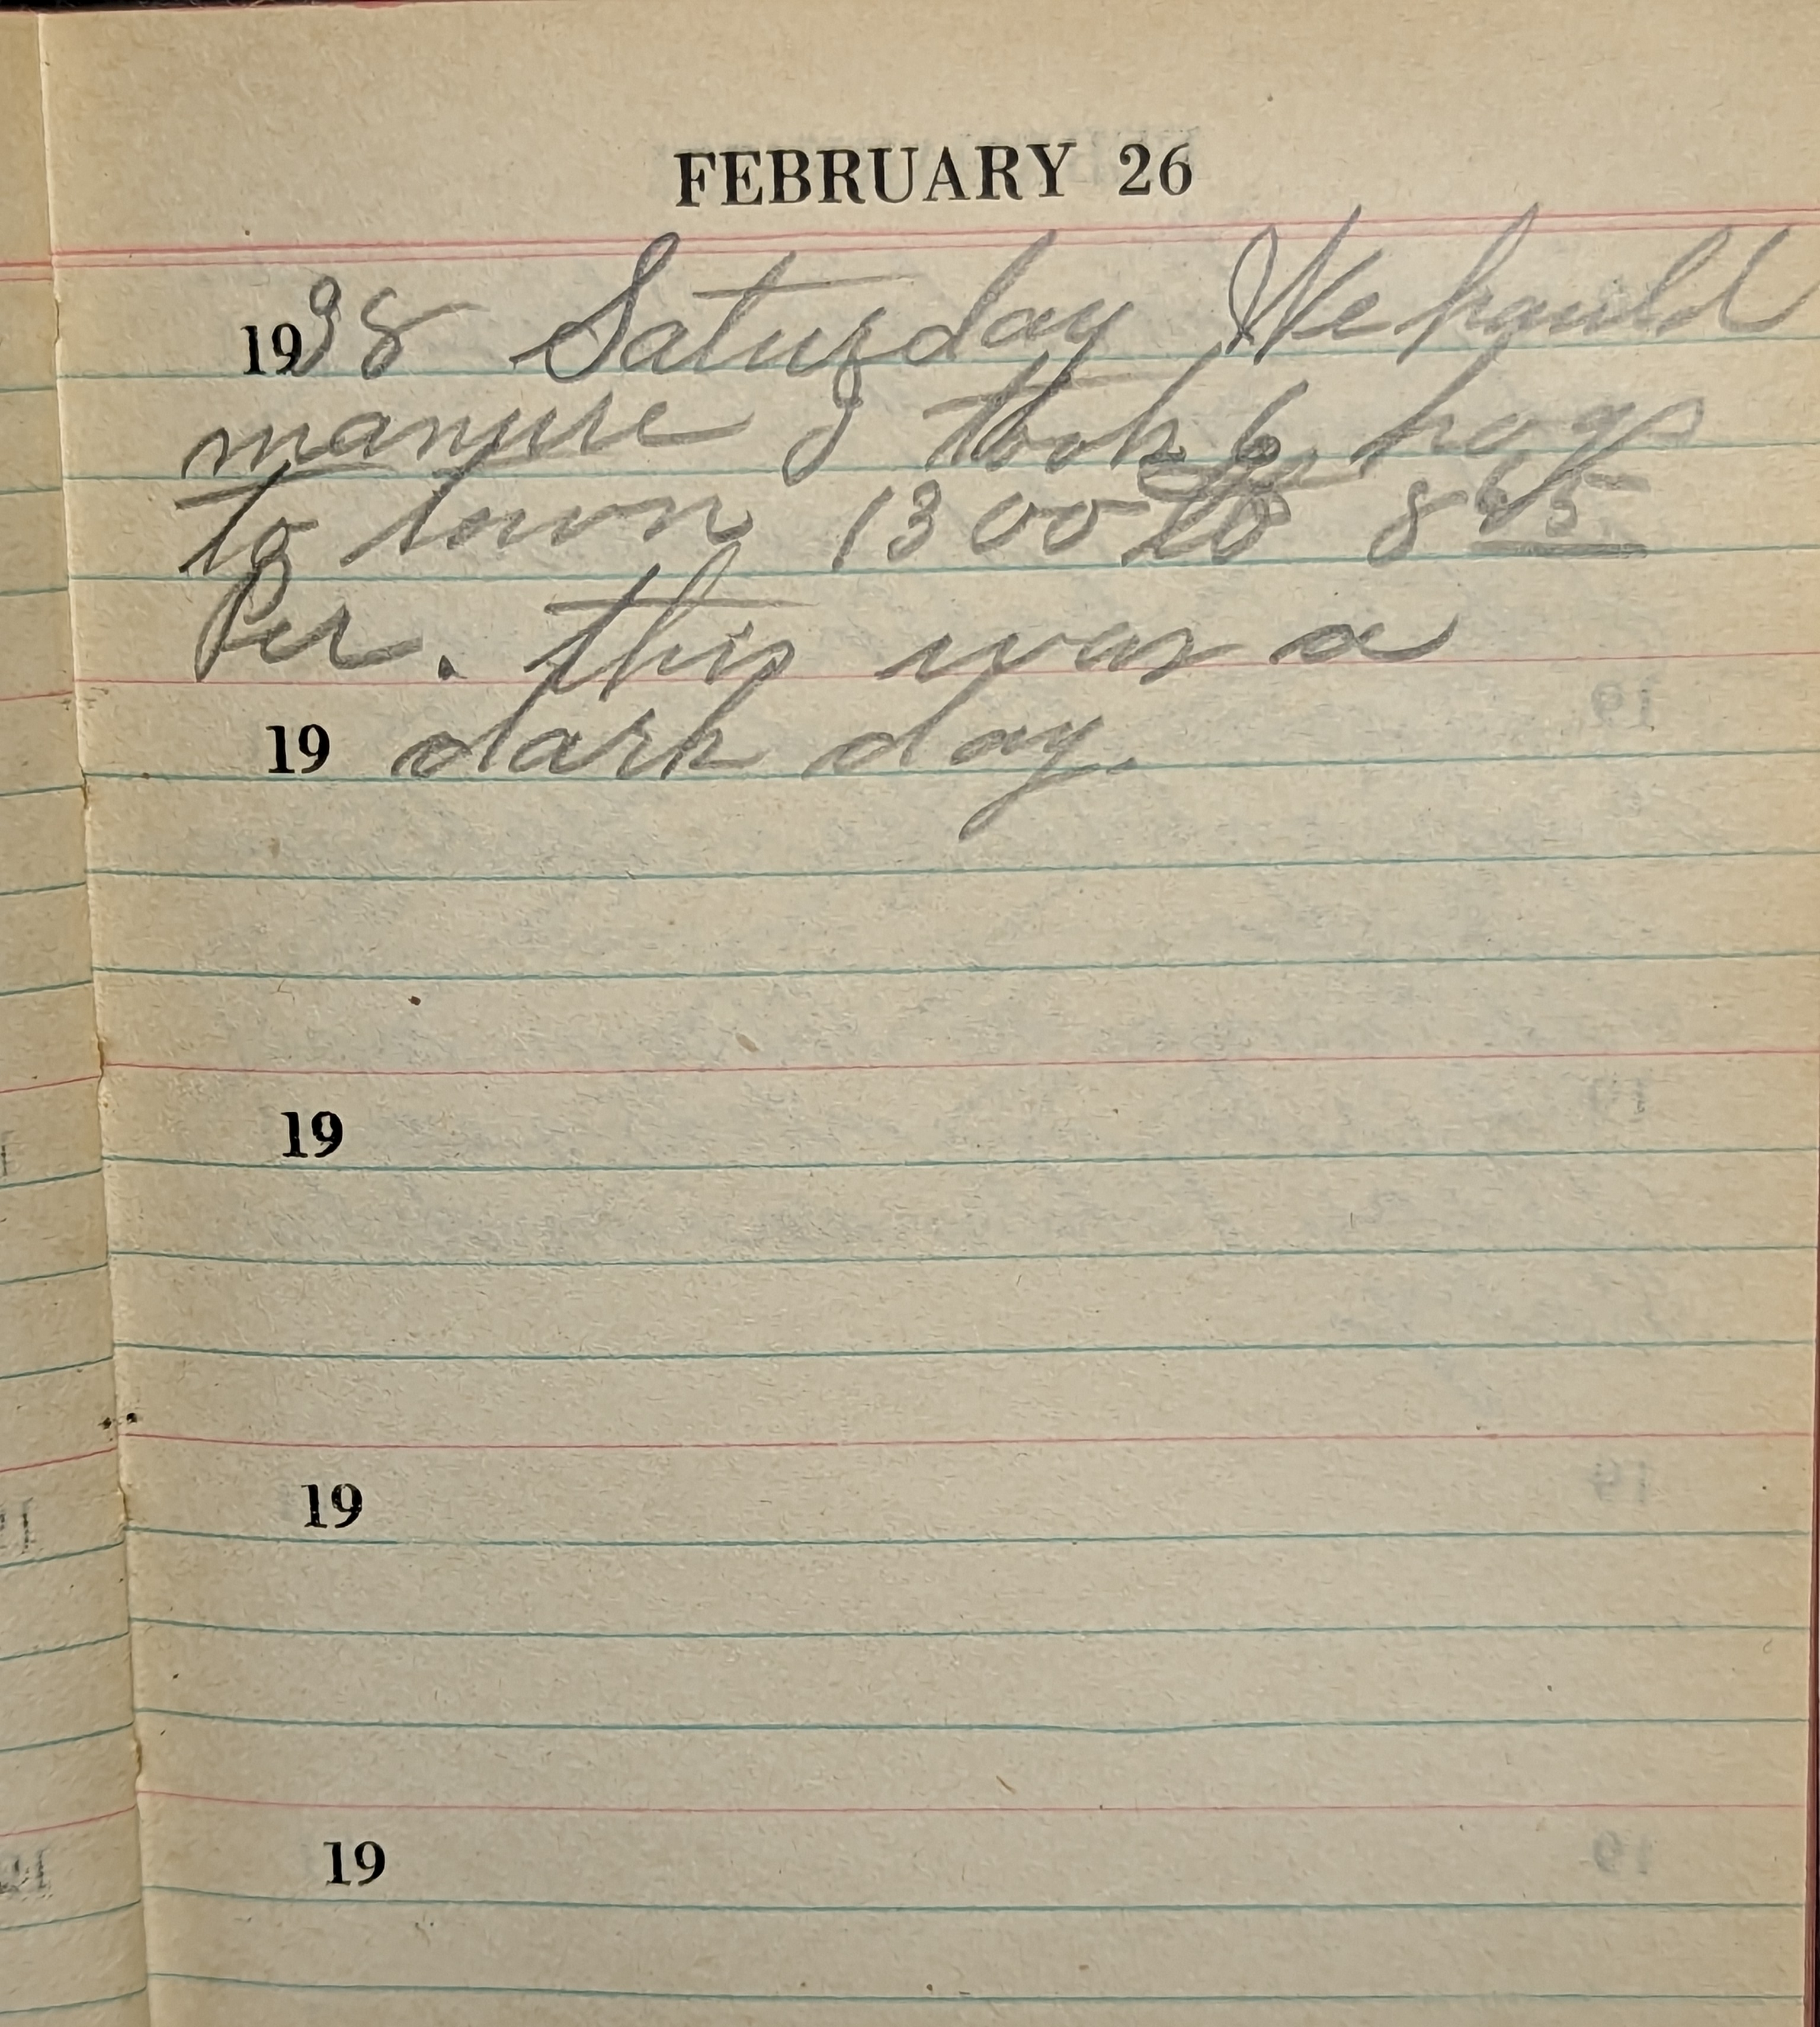 FEBRUARY 26
1938 Saturday We hauld
manure I took 6 hogs
to town 1300 lb 8 65
Per. this was a
19 dark day.
19
19
19